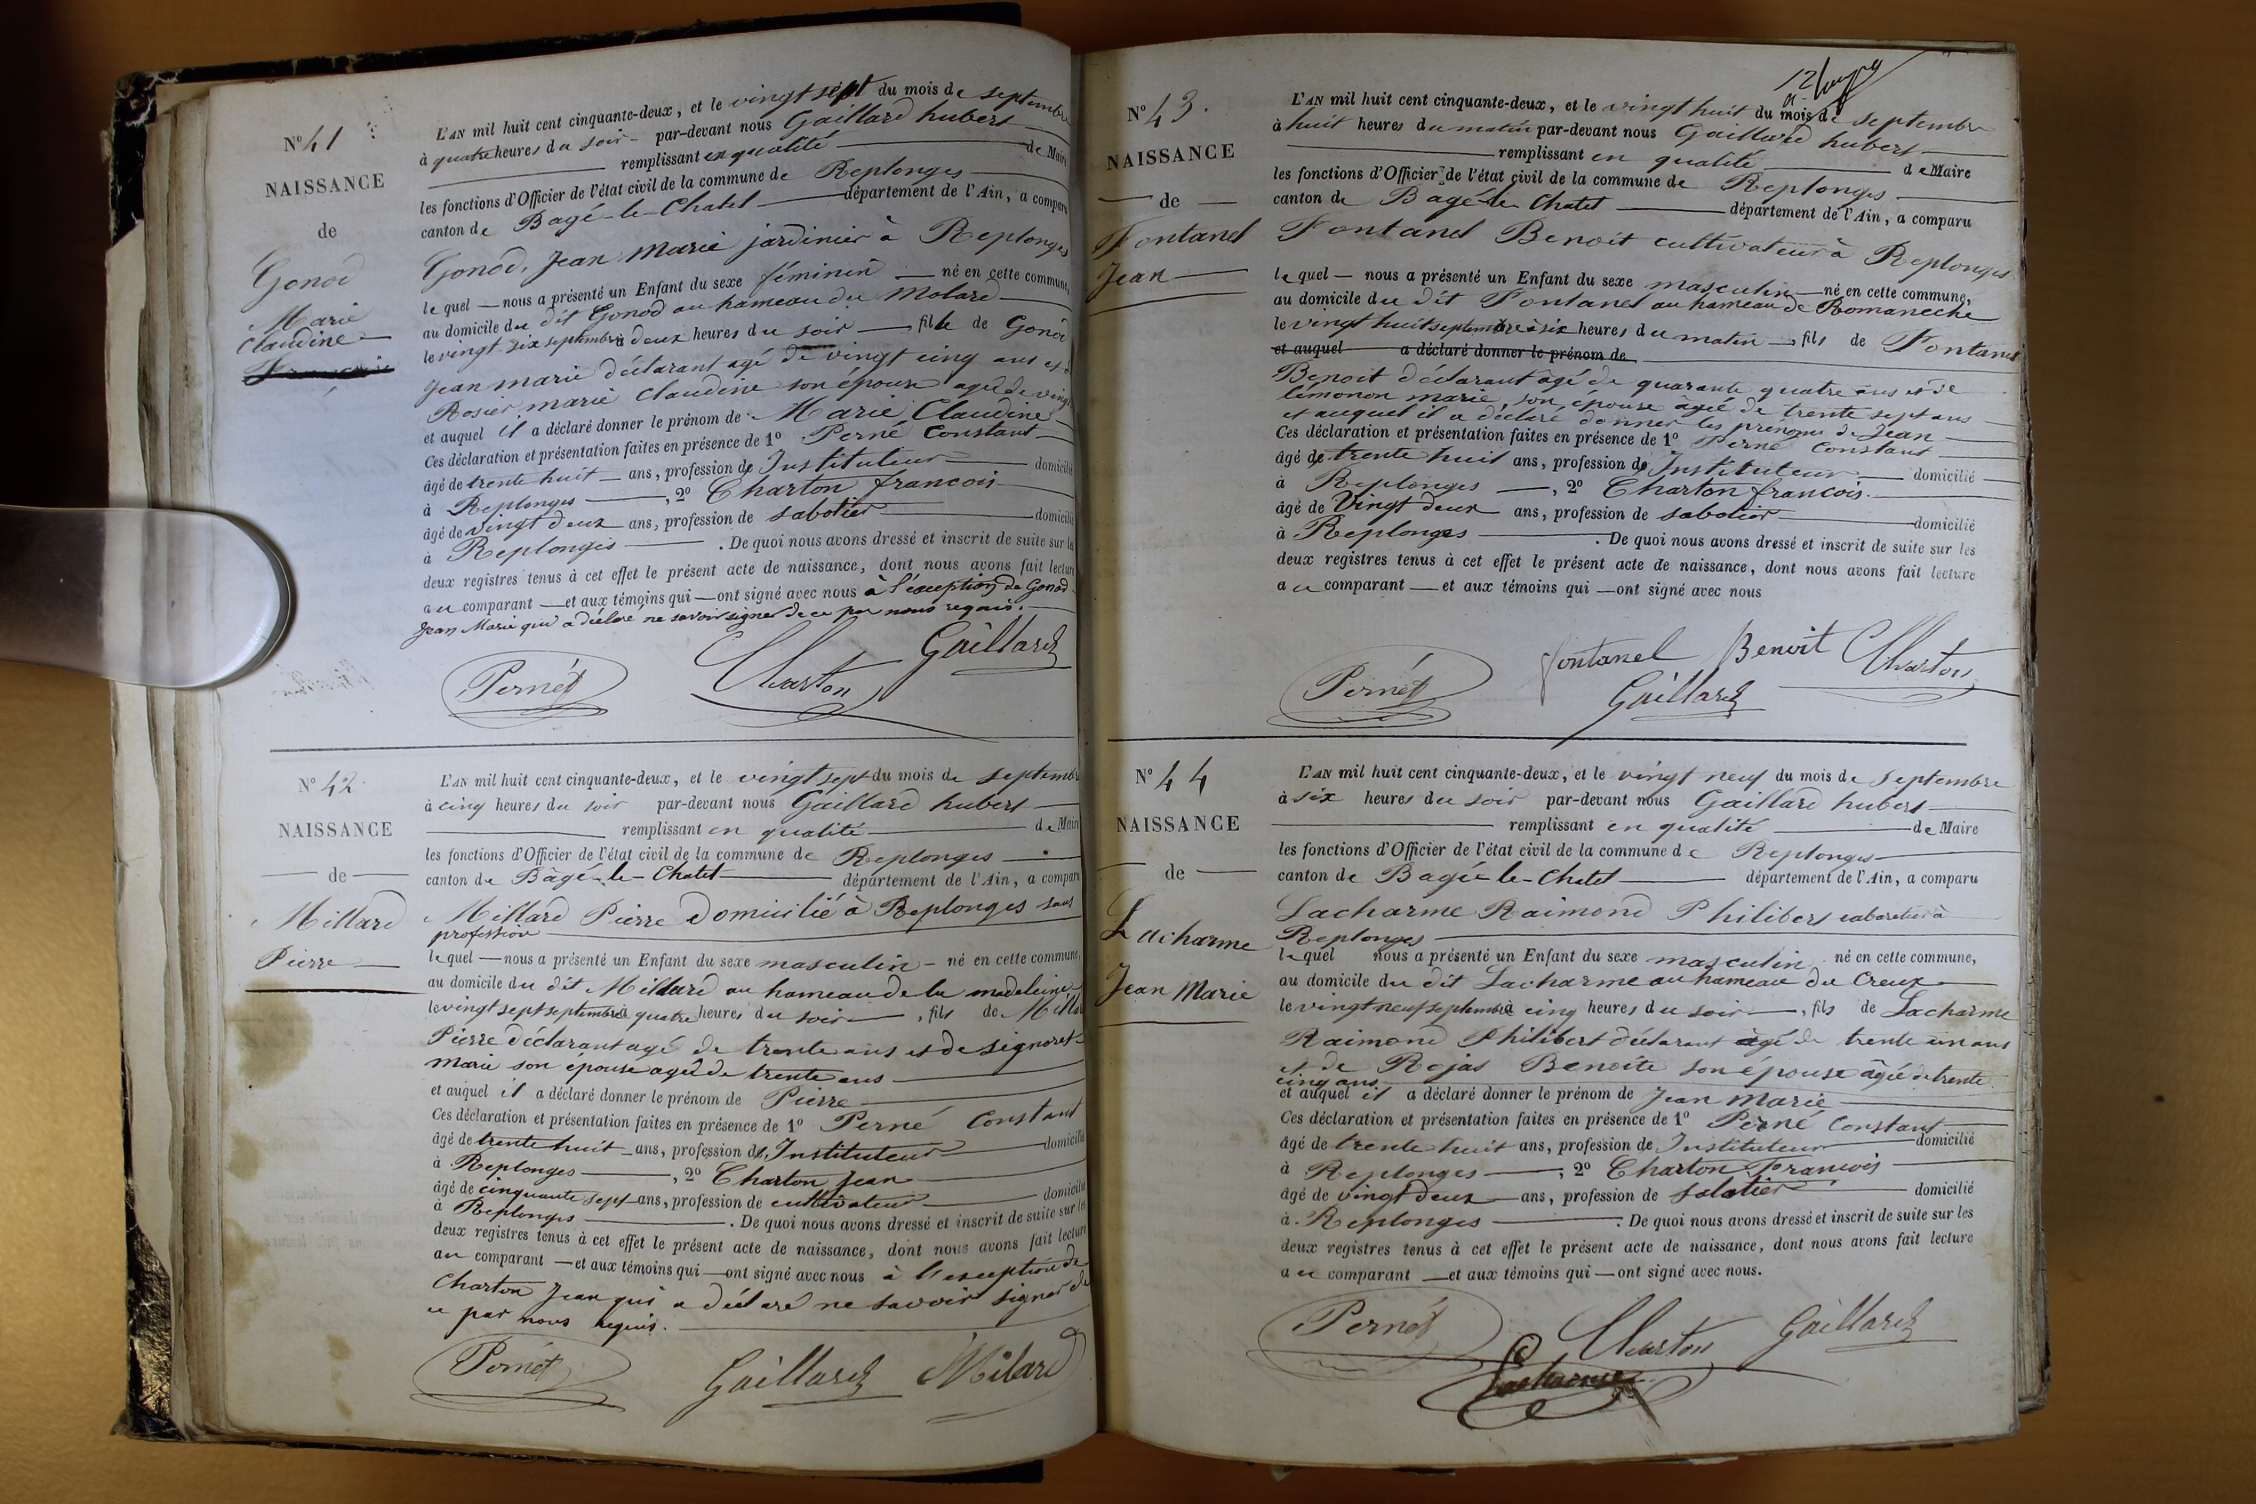 N° 41
NAISSANCE
de
Gonod
Marie
Claudine
L'AN mil huit cent cinquante-deux, et le vingt sept du mois de septembre
à quatre heures du soir par-devant nous Gaillard hubert
remplissant en qualité de Maire
les fonctions d'Officier de l'état civil de la commune de Replonges
canton de Bagé-le-Chatel département de l'Ain, a comparu
Gonod, Jean Marie jardinier à Replonges
le quel nous a présenté un Enfant du sexe féminin né en cette commune,
au domicile du dit Gonod au hameau du Molard
le vingt six septembre à deux heures du soir fille de Gonod
Jean marie déclarant agé de vingt cinq ans et de
Rosier marie Claudine son épouse agée de vingt
et auquel il a déclaré donner le prénom de Marie Claudine
Ces déclaration et présentation faites en présence de 1° Perné Constant
âgé de trente huit ans, profession de Instituteur domicilié
à Replonges, 2° Charton francois
âgé de vingt deux ans, profession de sabotier domicilié
à Replonges. De quoi nous avons dressé et inscrit de suite sur les
deux registres tenus à cet effet le présent acte de naissance, dont nous avons fait lecture
au comparant et aux témoins qui ont signé avec nous à l'exception de Gonod
Jean Marie qui a déclaré ne savoir signer de ce par nous requis.
Pernét Charton Gaillard
N° 42
NAISSANCE
de
Millard
Pierre
L'AN mil huit cent cinquante-deux, et le vingt sept du mois de septembre
à cinq heures du soir par-devant nous Gaillard hubert
remplissant en qualité de Maire
les fonctions d'Officier de l'état civil de la commune de Replonges
canton de Bâgé-le-Chatel département de l'Ain, a comparu
Millard Pierre domicilié à Replonges sans
profession
le quel nous a présenté un Enfant du sexe masculin né en cette commune,
au domicile du dit Millard au hameau de la madeleine
le vingt sept septembre à quatre heures du soir, fils de Millard
Pierre déclarant agé de trente ans et de Signoret
marie son épouse agée de trente ans
et auquel il a déclaré donner le prénom de Pierre
Ces déclaration et présentation faites en présence de 1° Perné Constant
âgé de trente huit ans, profession de Instituteur domicilié
à Replonges, 2° Charton Jean
âgé de cinquante sept ans, profession de cultivateur domicilié
à Replonges. De quoi nous avons dressé et inscrit de suite sur les
deux registres tenus à cet effet le présent acte de naissance, dont nous avons fait lecture
au comparant et aux témoins qui ont signé avec nous à l'exception de
Charton Jean qui a déclaré ne savoir signer de
ce par nous requis.
Pernét Gaillard Milard
N° 43.
NAISSANCE
de
Fontanel
Jean
L'AN mil huit cent cinquante-deux, et le vingt huit du mois de septembre
à huit heures du matin par-devant nous Gaillard hubert
remplissant en qualité de Maire
les fonctions d'Officier de l'état civil de la commune de Replonges
canton de Bagé-le-Chatel département de l'Ain, a comparu
Fontanel Benoit cultivateur à Replonges
le quel nous a présenté un Enfant du sexe masculin né en cette commune,
au domicile du dit Fontanel au hameau de Romaneche
le vingt huit septembre à six heures du matin, fils de Fontanel
et auquel a déclaré donner le prénom de
Benoit déclarant âgé de quarante quatre ans et de
Lémonon marie son épouse âgée de trente sept ans
et auquel il a déclaré donner les prénoms de Jean
Ces déclaration et présentation faites en présence de 1° Perné Constant
âgé de trente huit ans, profession de Instituteur domicilié
à Replonges, 2° Charton francois.
âgé de Vingt deux ans, profession de sabotier domicilié
à Replonges. De quoi nous avons dressé et inscrit de suite sur les
deux registres tenus à cet effet le présent acte de naissance, dont nous avons fait lecture
au comparant et aux témoins qui ont signé avec nous
fontanel Benoit Charton
Pernét Gaillard
N° 44
NAISSANCE
de
Lacharme
Jean Marie
L'AN mil huit cent cinquante-deux, et le vingt neuf du mois de septembre
à six heures du soir par-devant nous Gaillard hubert
remplissant en qualité de Maire
les fonctions d'Officier de l'état civil de la commune de Replonges
canton de Bagé-le-Chatel département de l'Ain, a comparu
Lacharme Raimond Philibert cabaretier à
Replonges
le quel nous a présenté un Enfant du sexe masculin né en cette commune,
au domicile du dit Lacharme au hameau du Creux
le vingt neuf septembre à cinq heures du soir, fils de Lacharme
Raimond Philibert déclarant agé de trente un ans
et de Rojas Benoite son épouse âgée de trente
cinq ans
et auquel il a déclaré donner le prénom de Jean Marie
Ces déclaration et présentation faites en présence de 1° Perné Constant
âgé de trente huit ans, profession de Instituteur domicilié
à Replonges, 2° Charton Francois
âgé de vingt deux ans, profession de sabotier domicilié
à Replonges. De quoi nous avons dressé et inscrit de suite sur les
deux registres tenus à cet effet le présent acte de naissance, dont nous avons fait lecture
au comparant et aux témoins qui ont signé avec nous.
Pernét Charton Gaillard
Lacharme